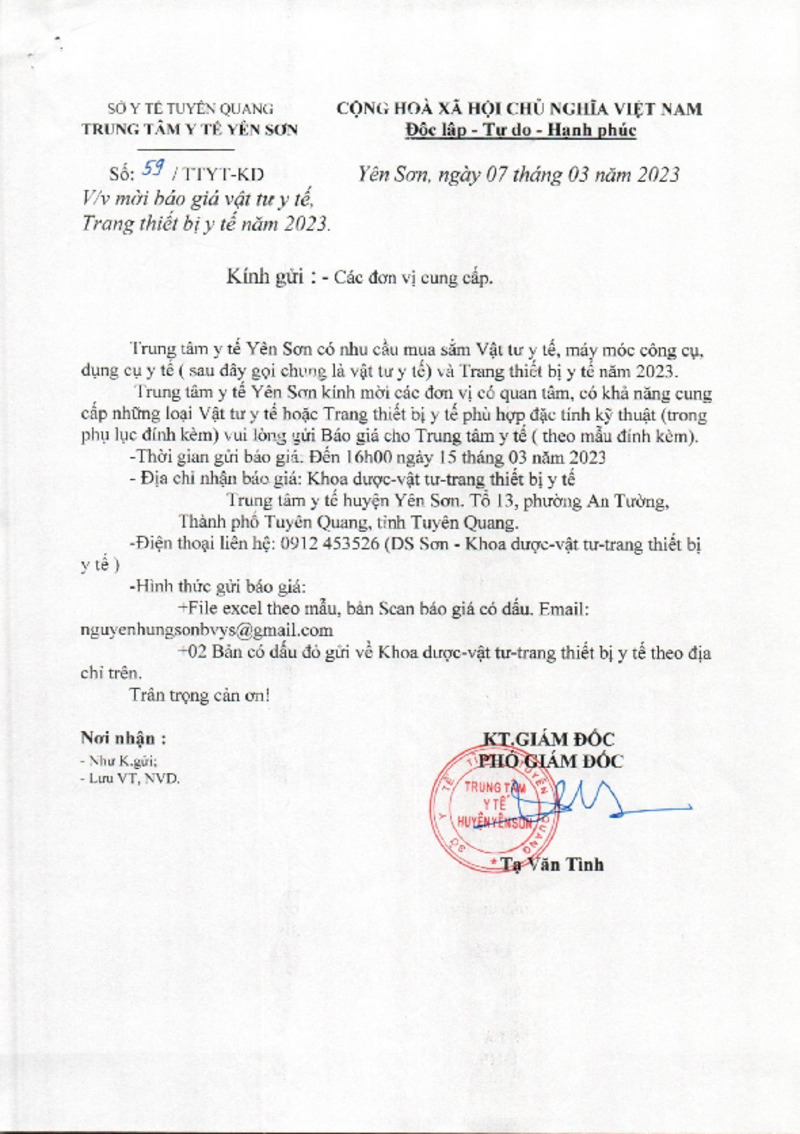 SỞ Y TẾ TUYÊN QUANG
TRUNG TÂM Y TẾ YÊN SƠN
CỘNG HOÀ XÃ HỘI CHỦ NGHĨA VIỆT NAM
Độc lập - Tự do - Hạnh phúc
Số: 59 / TTYT-KD
Yên Sơn, ngày 07 tháng 03 năm 2023
V/v mời báo giá vật tư y tế,
Trang thiết bị y tế năm 2023.
Kính gửi : - Các đơn vị cung cấp.
Trung tâm y tế Yên Sơn có nhu cầu mua sắm Vật tư y tế, máy móc công cụ,
dụng cụ y tế ( sau đây gọi chung là vật tư y tế) và Trang thiết bị y tế năm 2023.
Trung tâm y tế Yên Sơn kính mời các đơn vị có quan tâm, có khả năng cung
cấp những loại Vật tư y tế hoặc Trang thiết bị y tế phù hợp đặc tính kỹ thuật (trong
phụ lục đính kèm) vui lòng gửi Báo giá cho Trung tâm y tế ( theo mẫu đính kèm).
-Thời gian gửi báo giá: Đến 16h00 ngày 15 tháng 03 năm 2023
- Địa chỉ nhận báo giá: Khoa dược-vật tư-trang thiết bị y tế
Trung tâm y tế huyện Yên Sơn. Tổ 13, phường An Tường,
Thành phố Tuyên Quang, tỉnh Tuyên Quang.
-Điện thoại liên hệ: 0912 453526 (DS Sơn - Khoa dược-vật tư-trang thiết bị
y tế )
-Hình thức gửi báo giá:
+File excel theo mẫu, bản Scan báo giá có dấu. Email:
nguyenhungsonbvys@gmail.com
+02 Bản có dấu đỏ gửi về Khoa dược-vật tư-trang thiết bị y tế theo địa
chỉ trên.
Trân trọng cản ơn!
Nơi nhận :
- Như K.gửi;
- Lưu VT, NVD.
KT.GIÁM ĐỐC
PHÓ GIÁM ĐỐC
SỞ Y TẾ TỈNH TUYÊN QUANG
TRUNG TÂM
Y TẾ
HUYỆN YÊN SƠN
Tạ Văn Tình